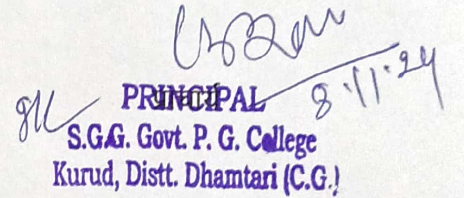 PRINCIPAL 8.11.24
S.G.G. Govt. P. G. College
Kurud, Distt. Dhamtari (C.G.)